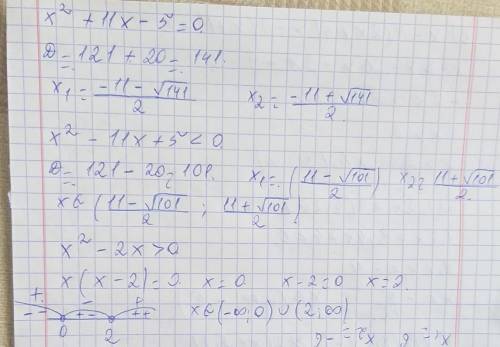 x² + 11x - 5 = 0.
D = 121 + 20 = 141.
x₁ = (-11 - √141)/2    x₂ = (-11 + √141)/2.
x² - 11x + 5 < 0.
D = 121 - 20 = 101.    x₁ = (11 - √101)/2    x₂ = (11 + √101)/2.
x ∈ ((11 - √101)/2 ; (11 + √101)/2)
x² - 2x > 0
x(x - 2) = 0.    x = 0.    x - 2 = 0    x = 2.
+ - +
-- +- ++    x ∈ (-∞, 0) ∪ (2, ∞)
0    2
x₁ = 6    x₂ = -6